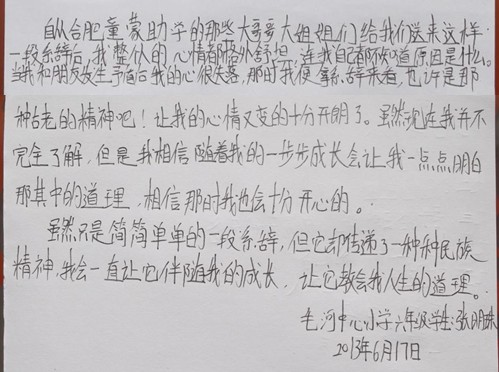 自从合肥童蒙助学的那些大哥哥大姐姐们给我们送来这样
一段系辞后，我整个人的心情都格外舒坦，连我自己都不知道原因是什么。
当我和朋友发生矛盾后我的心很失落，那时我便拿系辞来看，也许是那
种古老的精神吧！让我的心情又变的十分开朗了。虽然现在我并不
完全了解，但是我相信随着我的一步步成长会让我一点点明白
那其中的道理，相信那时我也会十分开心的。
虽然只是简简单单的一段系辞，但它却传递了一种种民族
精神，我会一直让它伴随我的成长，让它教会我人生的道理。
毛河中心小学六年级学生：张明珠
2013年6月17日